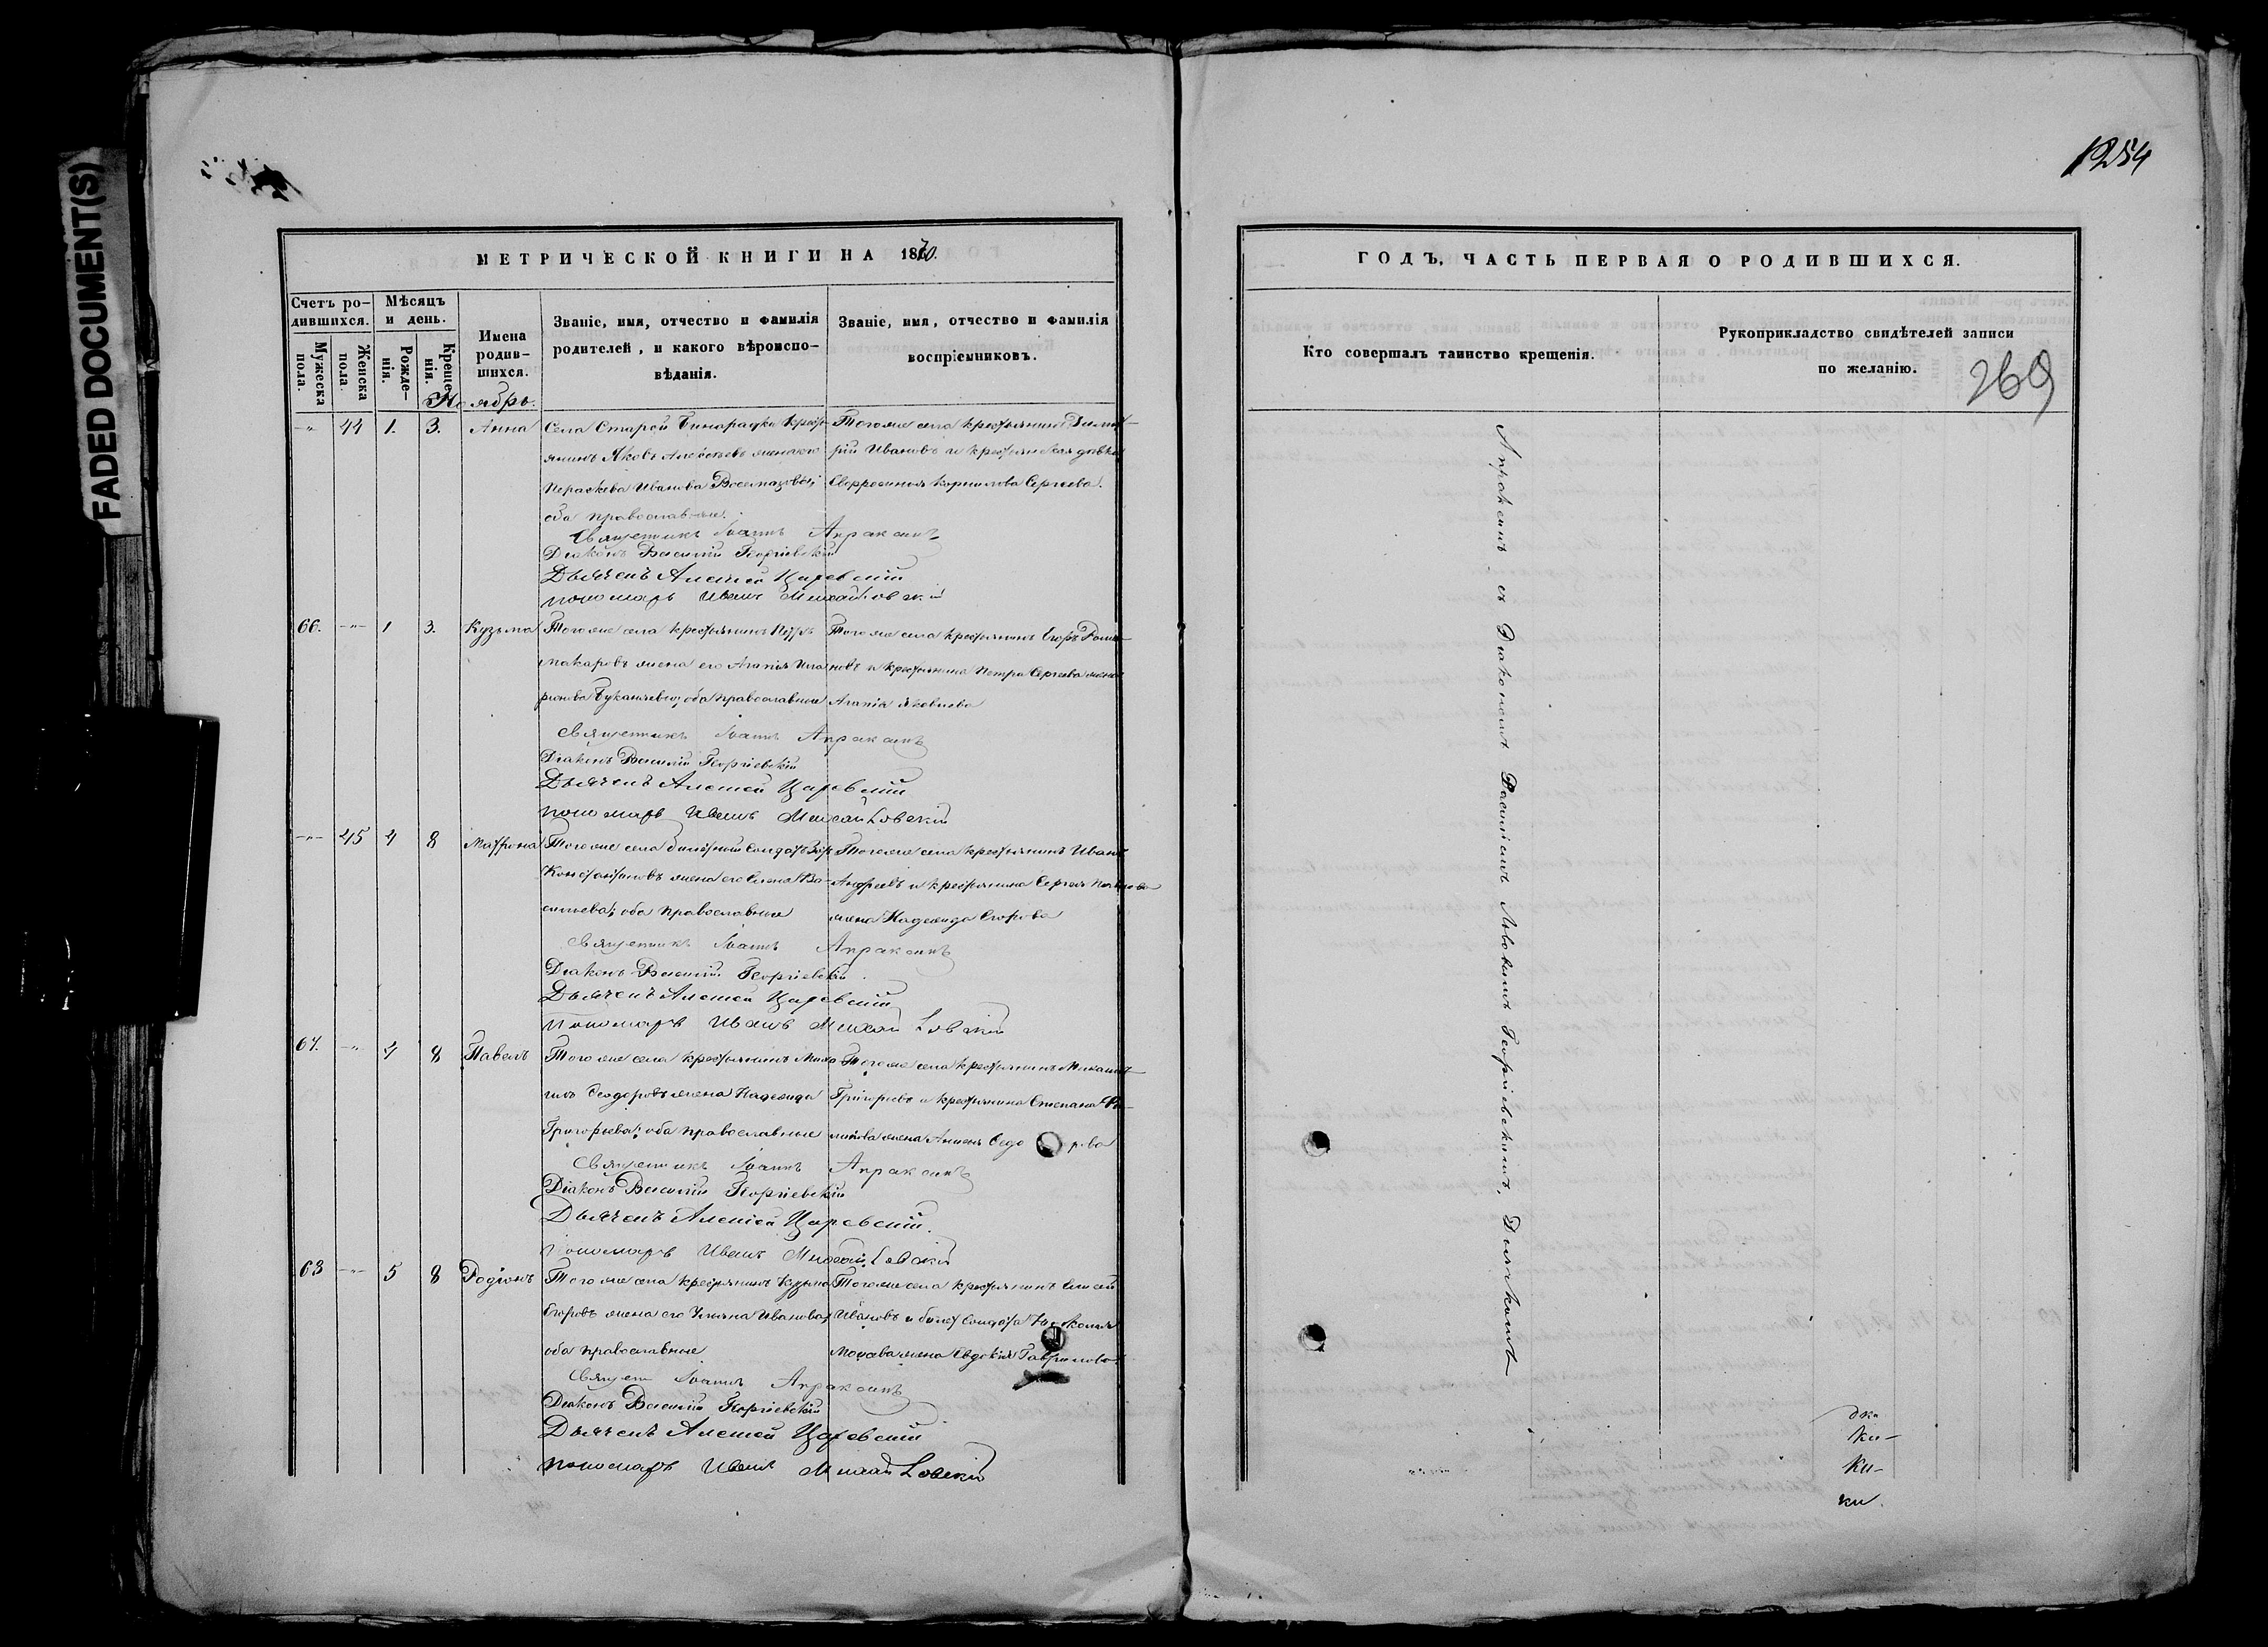 FADED DOCUMENT(S)
МЕТРИЧЕСКОЙ КНИГИ НА 1870.
Счетъ родившихся.
Мужеска пола.
Женска пола.
Мѣсяцъ и день.
Рожденія.
Крещенія.
Имена родившихся.
Званіе, имя, отчество и фамилія родителей, и какого вѣроисповѣданія.
Званіе, имя, отчество и фамилія воспріемниковъ.
Ноябрь.
-"- 44 1. 3. Анна
Села Старой Бинарадки кресть-
янинъ Яковъ Алексѣевъ жена его
Параскева Иванова
оба православные.
Тогоже села крестьянинъ Димит-
рій Ивановъ и крестьянская дѣвка
Корнилова Сергѣева.
Священникъ Іоаннъ Апраксинъ
Діаконъ Василій Георгіевскій
Дьячекъ Алексей Царевскій
пономарь Иванъ Михайловскій
66. -"- 1 3. Кузьма
Тогоже села крестьянинъ Петръ
Макаровъ жена его Агапія Ила-
ріонова оба православные
Тогоже села крестьянинъ Егоръ Рома-
новъ и крестьянина Петра Сергѣева жена
Агапія Яковлева
Священникъ Іоаннъ Апраксинъ
Діаконъ Василій Георгіевскій
Дьячекъ Алексей Царевскій
пономарь Иванъ Михайловскій
-"- 45 4 8 Матрона
Тогоже села билетный солдатъ
Константиновъ жена его Елена Ва-
сильева, оба православные
Тогоже села крестьянинъ Иванъ
Андреевъ и крестьянина Сергея
жена Надежда Егорова
Священникъ Іоаннъ Апраксинъ
Діаконъ Василій Георгіевскій
Дьячекъ Алексей Царевскій
Пономарь Иванъ Михайловскій
67. -"- 4 8 Павелъ
Тогоже села крестьянинъ Миха-
илъ Феодоровъ жена Надежда
Григорьева, оба православные
Тогоже села крестьянинъ
Григорьевъ и крестьянина Степана
жена
Священникъ Іоаннъ Апраксинъ
Діаконъ Василій Георгіевскій
Дьячекъ Алексей Царевскій.
Пономарь Иванъ Михайловскій
68 -"- 5 8 Родіонъ
Тогоже села крестьянинъ Кузьма
Егоровъ жена его Ульяна Иванова,
оба православные
Тогоже села крестьянинъ
Ивановъ и билет солдата
жена Евдокія Гаврилова.
Священ Іоаннъ Апраксинъ
Діаконъ Василій Георгіевскій
Дьячекъ Алексей Царевскій
пономарь Иванъ Михайловскій
1254
ГОДЪ, ЧАСТЬ ПЕРВАЯ О РОДИВШИХСЯ.
Кто совершалъ таинство крещенія.
Рукоприкладство свидѣтелей записи по желанію.
269
Апраксинъ съ Діакономъ Василіемъ Львовымъ Георгіевскимъ, Дьячкомъ
ки-
ки-
ки.